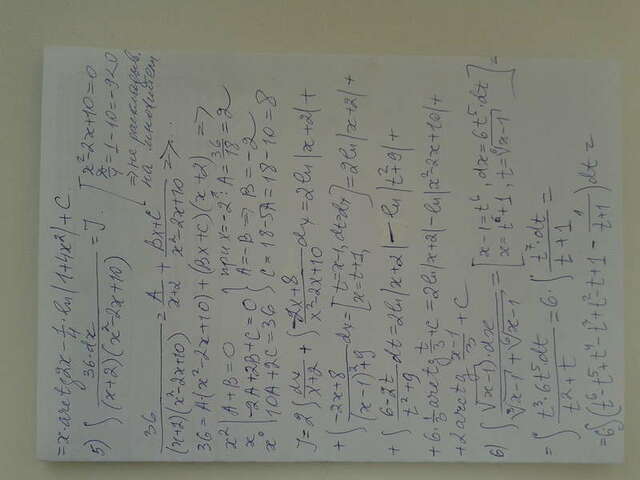 = x·arctg2x - 1/4·ln|1+4x²| + C
5) ∫ 36·dx / (x+2)(x²-2x+10) = J. [x²-2x+10=0
D/4 = 1-10 = -9<0
⇒ не расклад.
на множители
36 / (x+2)(x²-2x+10) = A/(x+2) + (Bx+C)/(x²-2x+10) ⇒
36 = A·(x²-2x+10) + (Bx+C)(x+2) ⇒
x² | A+B=0 при x=-2: A = 36/18 = 2
x | -2A+2B+C=0 } A=-B ⇒ B=-2
x⁰ | 10A+2C=36 } C=18-5A=18-10=8
J = 2∫ dx/(x+2) + ∫ (-2x+8)/(x²-2x+10) dx = 2ln|x+2| +
+ ∫ (-2x+8)/((x-1)²+9) dx = [t=x-1, dt=dx, x=t+1] = 2ln|x+2| +
+ ∫ (6-2t)/(t²+9) dt = 2ln|x+2| - ln|t²+9| +
+ 6·1/3 arctg t/3 + C = 2ln|x+2| - ln|x²-2x+10| +
+ 2arctg (x-1)/3 + C
6) ∫ √(x-1)·dx / (∛(x-1) + ⁶√(x-1)) = [x-1=t⁶, dx=6t⁵·dt, x=t⁶+1, t=⁶√(x-1)] =
= ∫ t³·6t⁵dt / (t²+t) = 6·∫ t⁷·dt / (t+1) =
= 6∫(t⁶-t⁵+t⁴-t³+t²-t+1 - 1/(t+1))dt =